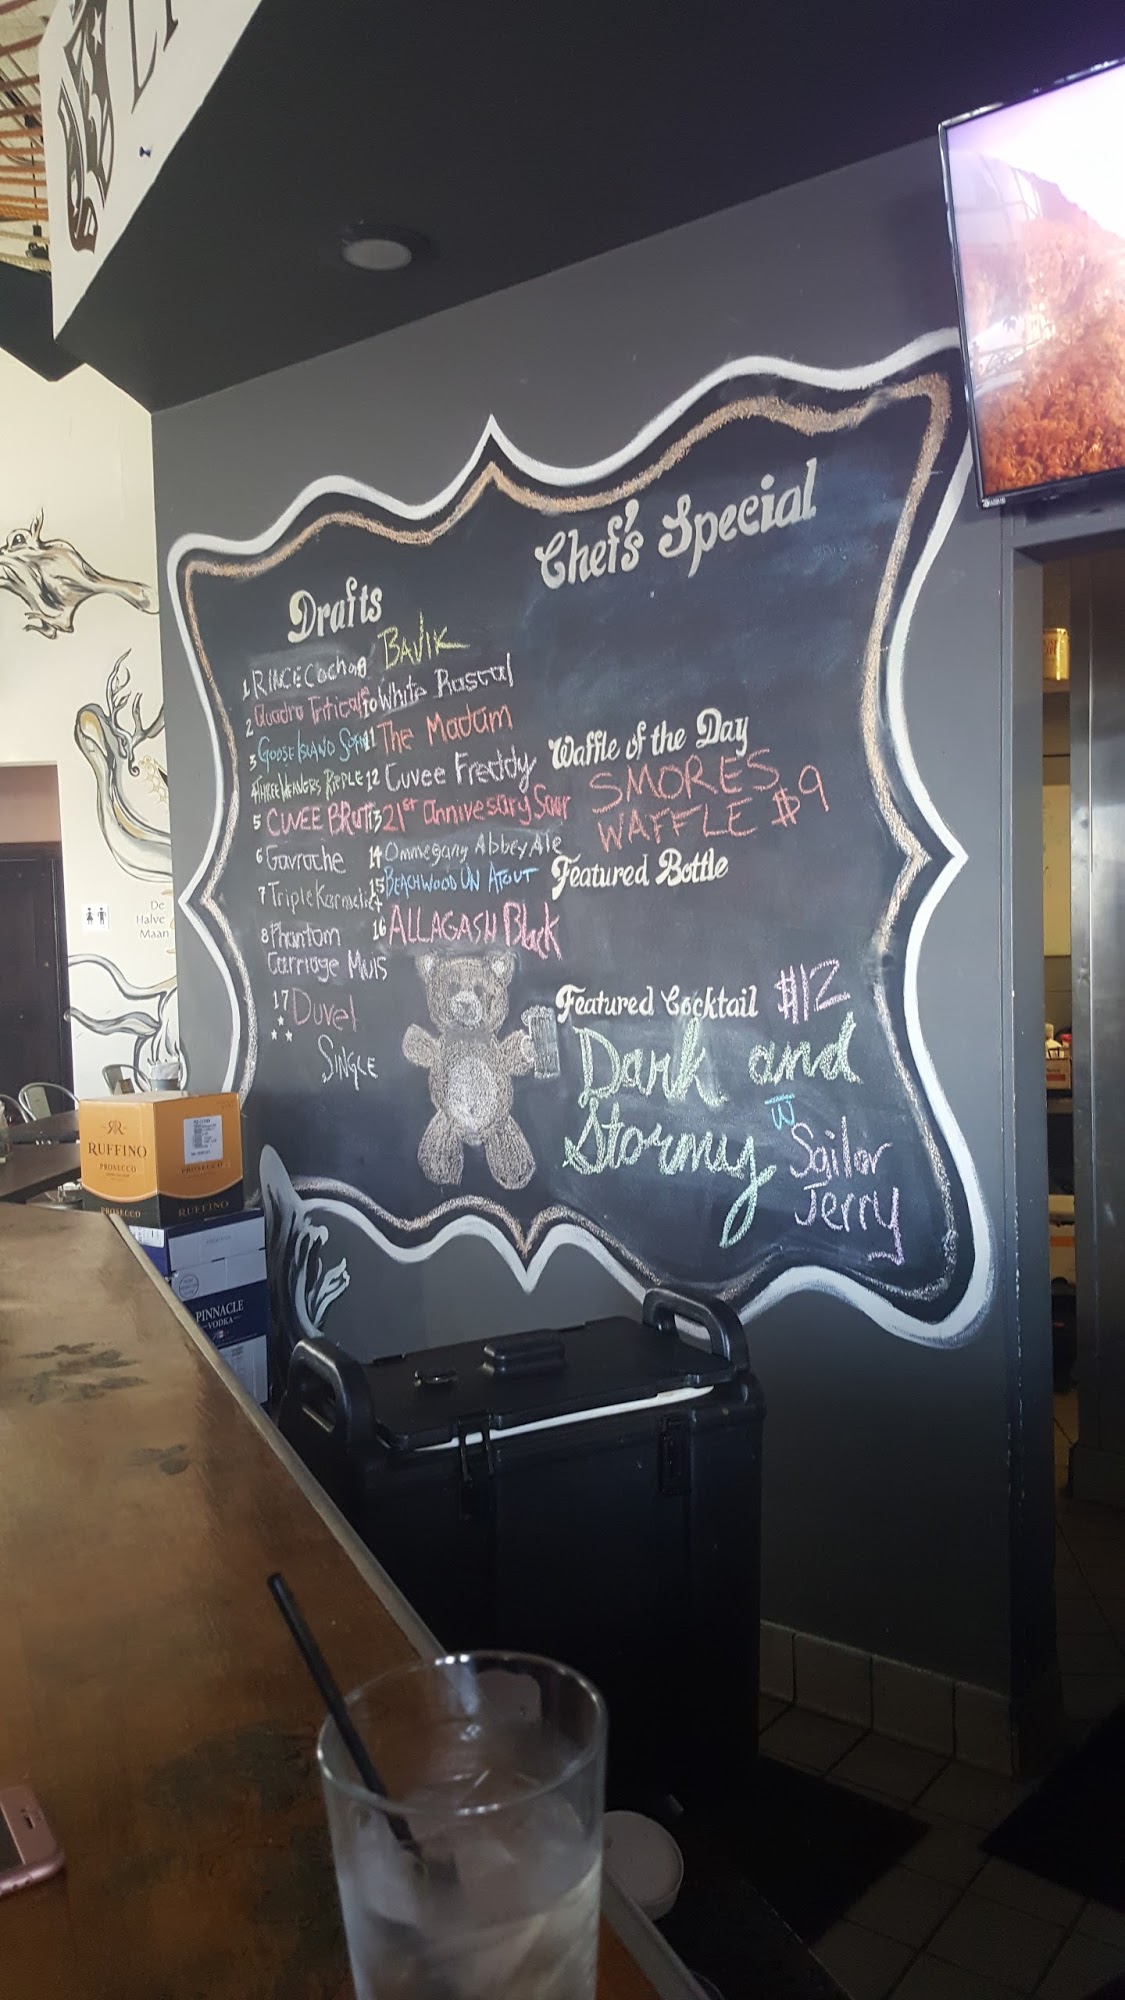 Drafts
1 RINCE Cochon
2 Quadro Tritical
3 GOOSE ISLAND SOFIE
4 THREE WEAVERS RIPPLE
5 CUVEE BRUT
6 Gavroche
7 Triple Karmeliet
8 Phantom
Carriage Muis
17 Duvel
SINGLE
9 BAVIK
10 White Rascal
11 The Madam
12 Cuvee Freddy
13 21st annivesary Sour
14 Ommegang Abbey Ale
15 BEACHWOOD UN ATOUT
16 ALLAGASH Black
Chef's Special
Waffle of the Day
SMORES
WAFFLE $9
Featured Bottle
Featured Cocktail $12
Dark and
Stormy
W
Sailor
Jerry
De
Halve
Maan
RUFFINO
PROSECCO
PROSECCO
PROSECCO
RUFFINO
PINNACLE
VODKA